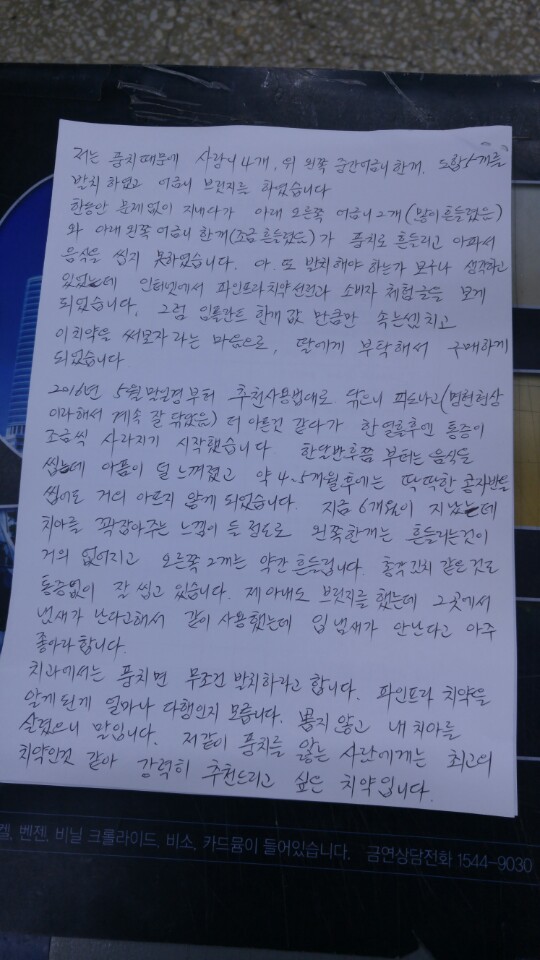 저는 풍치때문에 사랑니4개, 위 왼쪽 중간어금니한개, 도합5개를
발치 하였고 어금니 브릿지를 하였습니다
한동안 문제없이 지내다가 아래 오른쪽 어금니2개(많이흔들렸음)
와 아래왼쪽어금니 한개(조금흔들렸음)가 풍치로 흔들리고 아파서
음식을 씹지 못하였습니다. 아, 또 발치해야 하는가 보구나 생각하고
있었는데 인터넷에서 파인프라치약선전과 소비자 체험글을 보게
되었습니다, 그럼 임플란트 한개 값 만큼만 속는셈치고
이치약을 써보자라는 마음으로, 딸에게 부탁해서 구매하게
되었습니다
2016년 5월말일경부터 추천사용법대로 닦으니 피도나고(명현현상
이라해서 계속 잘 닦았음) 더 아픈것 같다가 한열흘후엔 통증이
조금씩 사라지기 시작했습니다 한달반후쯤 부터는음식을
씹는데 아픔이 덜 느껴졌고 약 4~5개월후에는 딱딱한 콩자반을
씹어도 거의 아프지 않게 되었습니다. 지금 6개월이 지났는데
치아를 꽉잡아주는 느낌이 들 정도로 왼쪽한개는 흔들리는것이
거의 없어지고 오른쪽2개는 약간 흔들립니다. 총각김치 같은것도
통증없이 잘 씹고 있습니다. 제 아내도 브릿지를했는데 그곳에서
냄새가 난다고해서 같이 사용했는데 입냄새가 안난다고 아주
좋아라 합니다.
치과에서는 풍치면 무조건 발치하라고 합니다. 파인프라 치약을
알게된게 얼마나 다행인지 모릅니다. 뽑지 않고 내 치아를
살렸으니 말입니다. 저같이 풍치를 앓는 사람에게는 최고의
치약인것 같아 강력히 추천드리고 싶은 치약입니다.
켈, 벤젠, 비닐 크롤라이드, 비소, 카드뮴이 들어있습니다. 금연상담전화 1544-9030